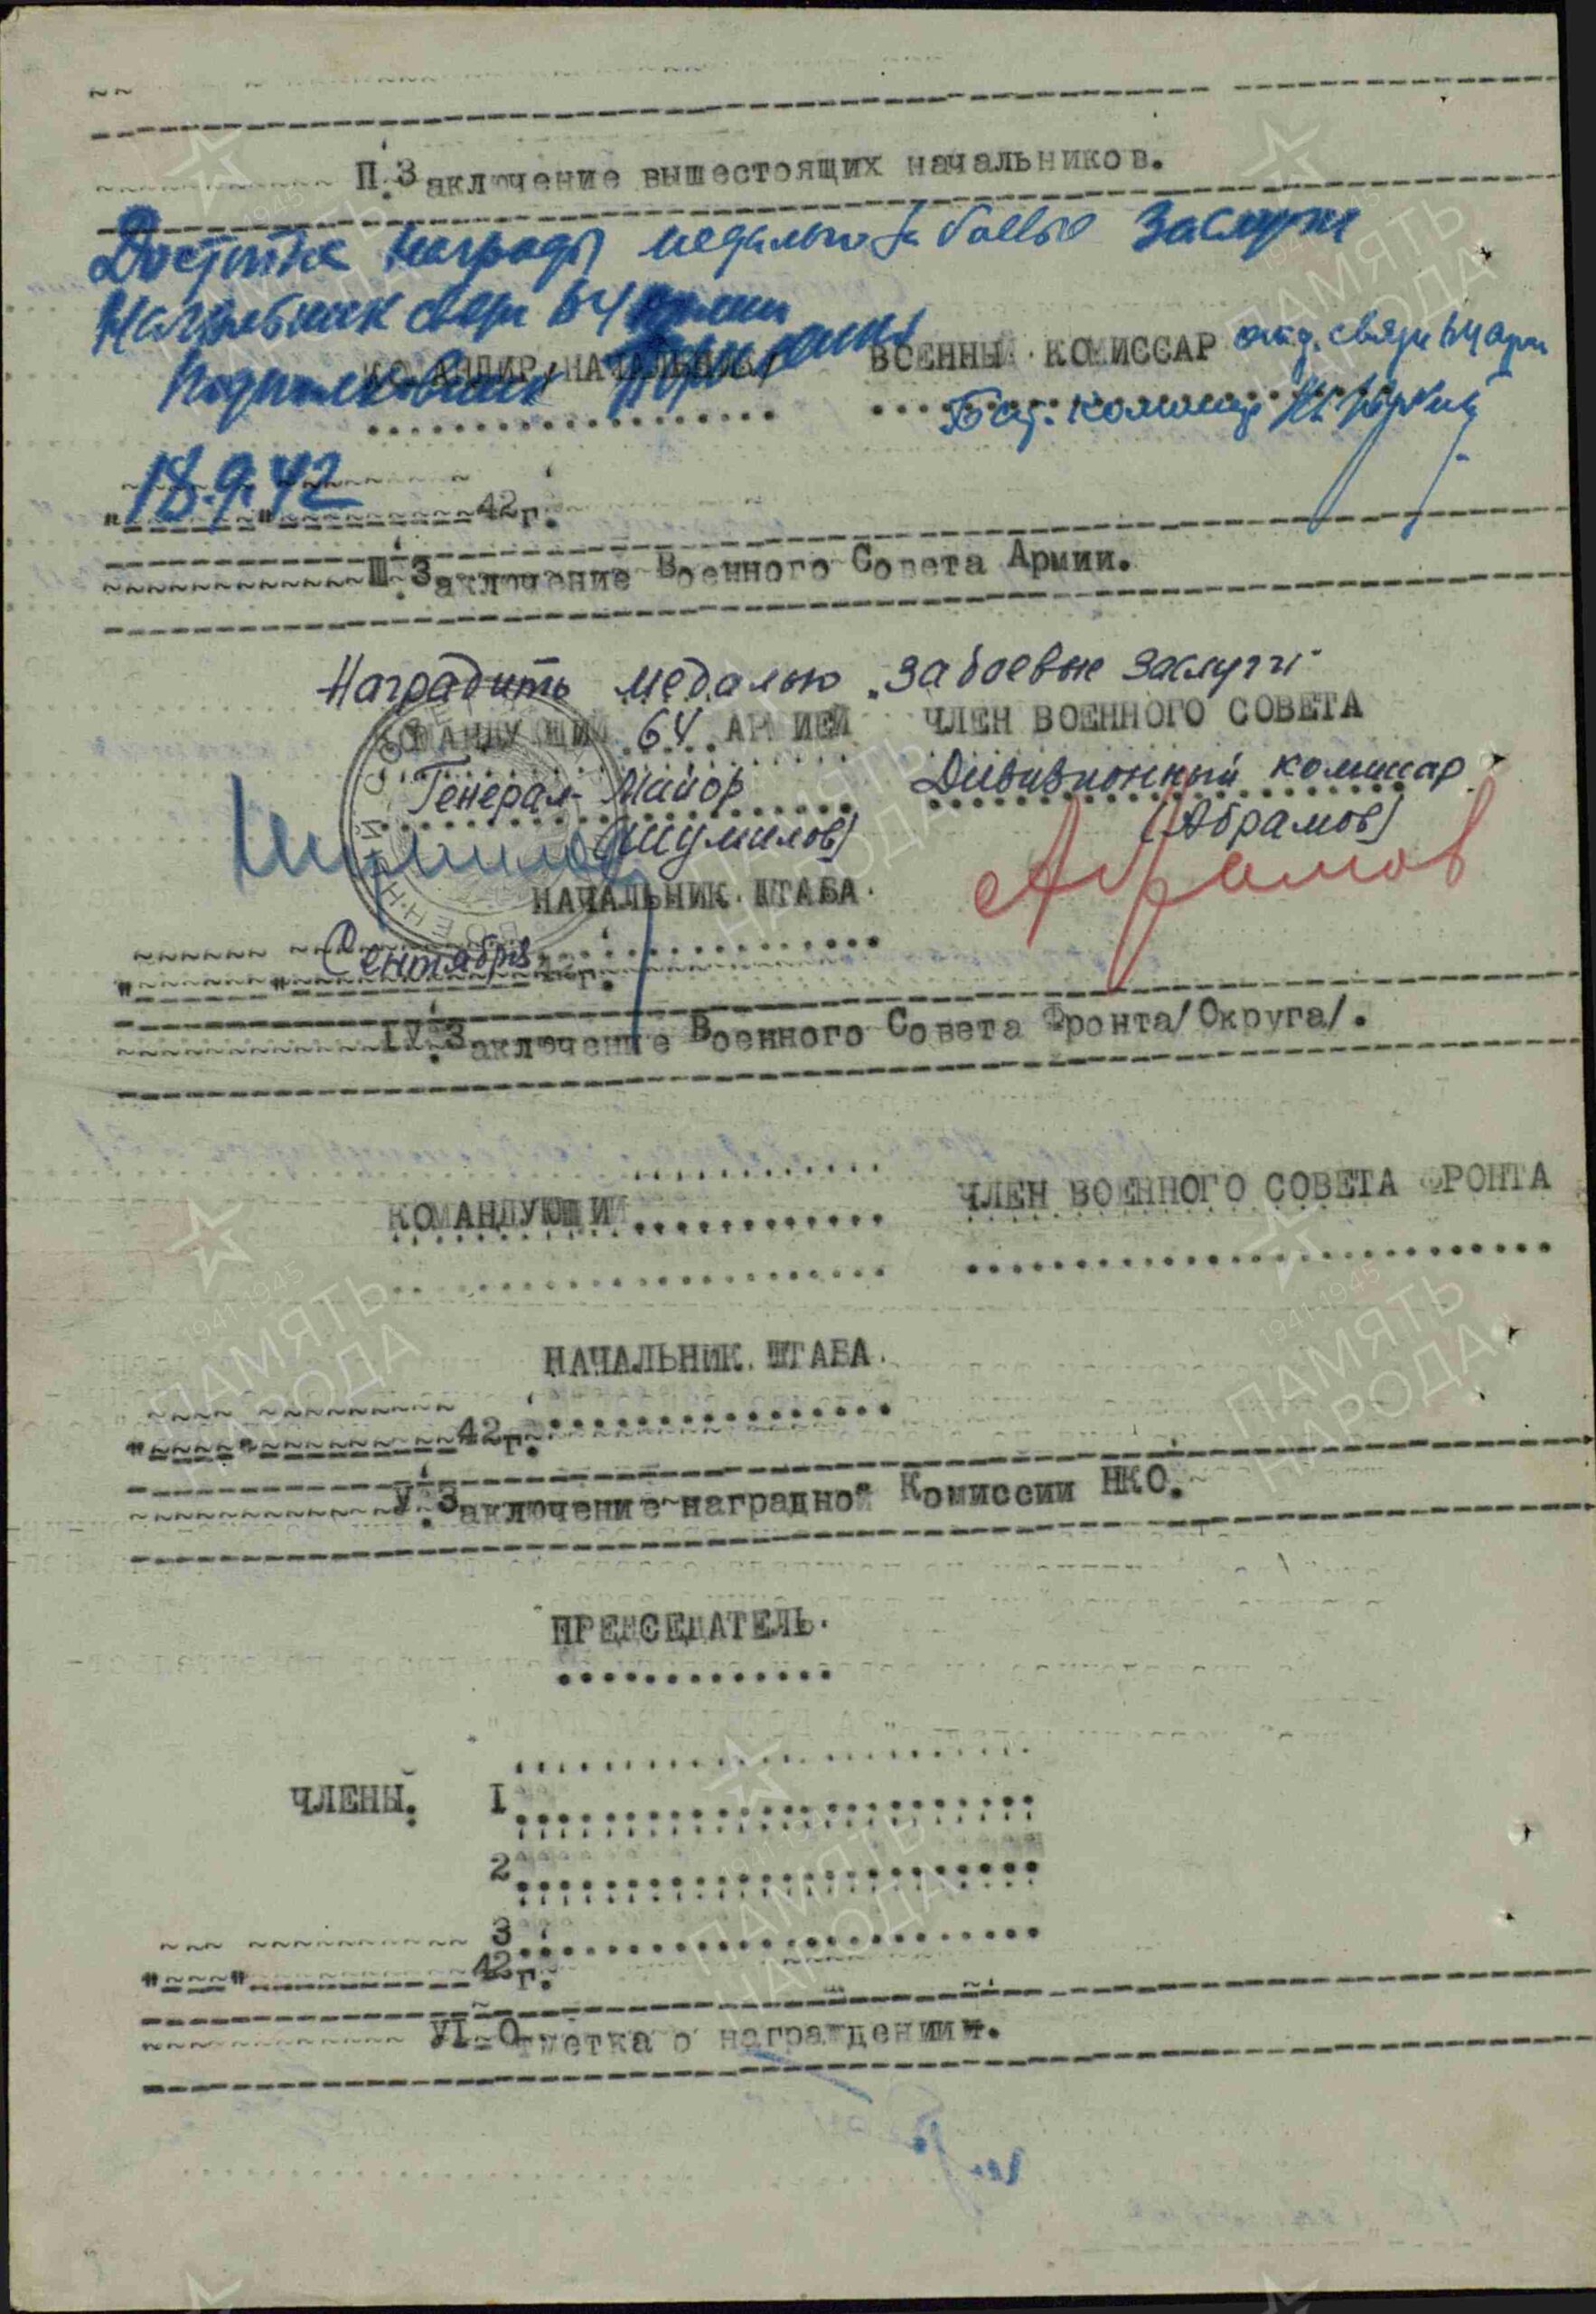 П. Заключение вышестоящих начальников.
Достоин награды медалью За боевые заслуги
Начальник связи 64 армии
КОМАНДИР /НАЧАЛЬНИК/ ВОЕННЫЙ КОМИССАР отд. связи 64 арм
Подполковник Бат. комиссар
18.9.42
"   " 42г.
Ш. Заключение Военного Совета Армии.
Наградить медалью "За боевые заслуги"
КОМАНДУЮЩИЙ 64 АРМИЕЙ ЧЛЕН ВОЕННОГО СОВЕТА
Генерал-Майор Дивизионный комиссар
(Шумилов) (Абрамов)
Шумилов Абрамов
НАЧАЛЬНИК ШТАБА.
"   " Сентября 42г.
IУ. Заключение Военного Совета Фронта/Округа/.
КОМАНДУЮЩИЙ ЧЛЕН ВОЕННОГО СОВЕТА ФРОНТА
НАЧАЛЬНИК ШТАБА.
"   " 42г.
У. Заключение наградной Комиссии НКО.
ПРЕДСЕДАТЕЛЬ.
ЧЛЕНЫ. I
2
3
"   " 42г.
УI-Отметка о награждениии.
1941-1945
ПАМЯТЬ
НАРОДА